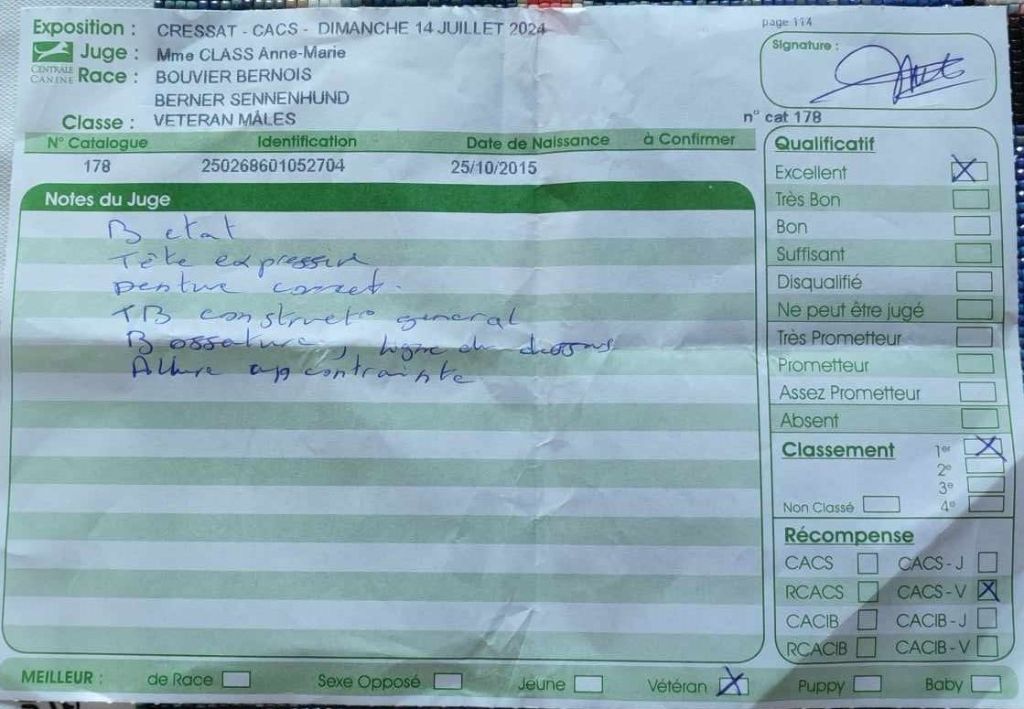 Exposition : CRESSAT - CACS - DIMANCHE 14 JUILLET 2024
page 114
CENTRALE CANINE
Juge : Mme CLASS Anne-Marie
Signature :
Race : BOUVIER BERNOIS
BERNER SENNENHUND
Classe : VETERAN MÂLES
n° cat 178
N° Catalogue Identification Date de Naissance à Confirmer
178 250268601052704 25/10/2015
Notes du Juge
B etat
Tête expressive
Denture correct.
TB construct° general
B ossature, ligne du dessus
Allure contrainte
Qualificatif
Excellent
Très Bon
Bon
Suffisant
Disqualifié
Ne peut être jugé
Très Prometteur
Prometteur
Assez Prometteur
Absent
Classement 1er
2e
3e
Non Classé 4e
Récompense
CACS CACS - J
RCACS CACS - V
CACIB CACIB - J
RCACIB CACIB - V
MEILLEUR : de Race Sexe Opposé Jeune Vétéran Puppy Baby